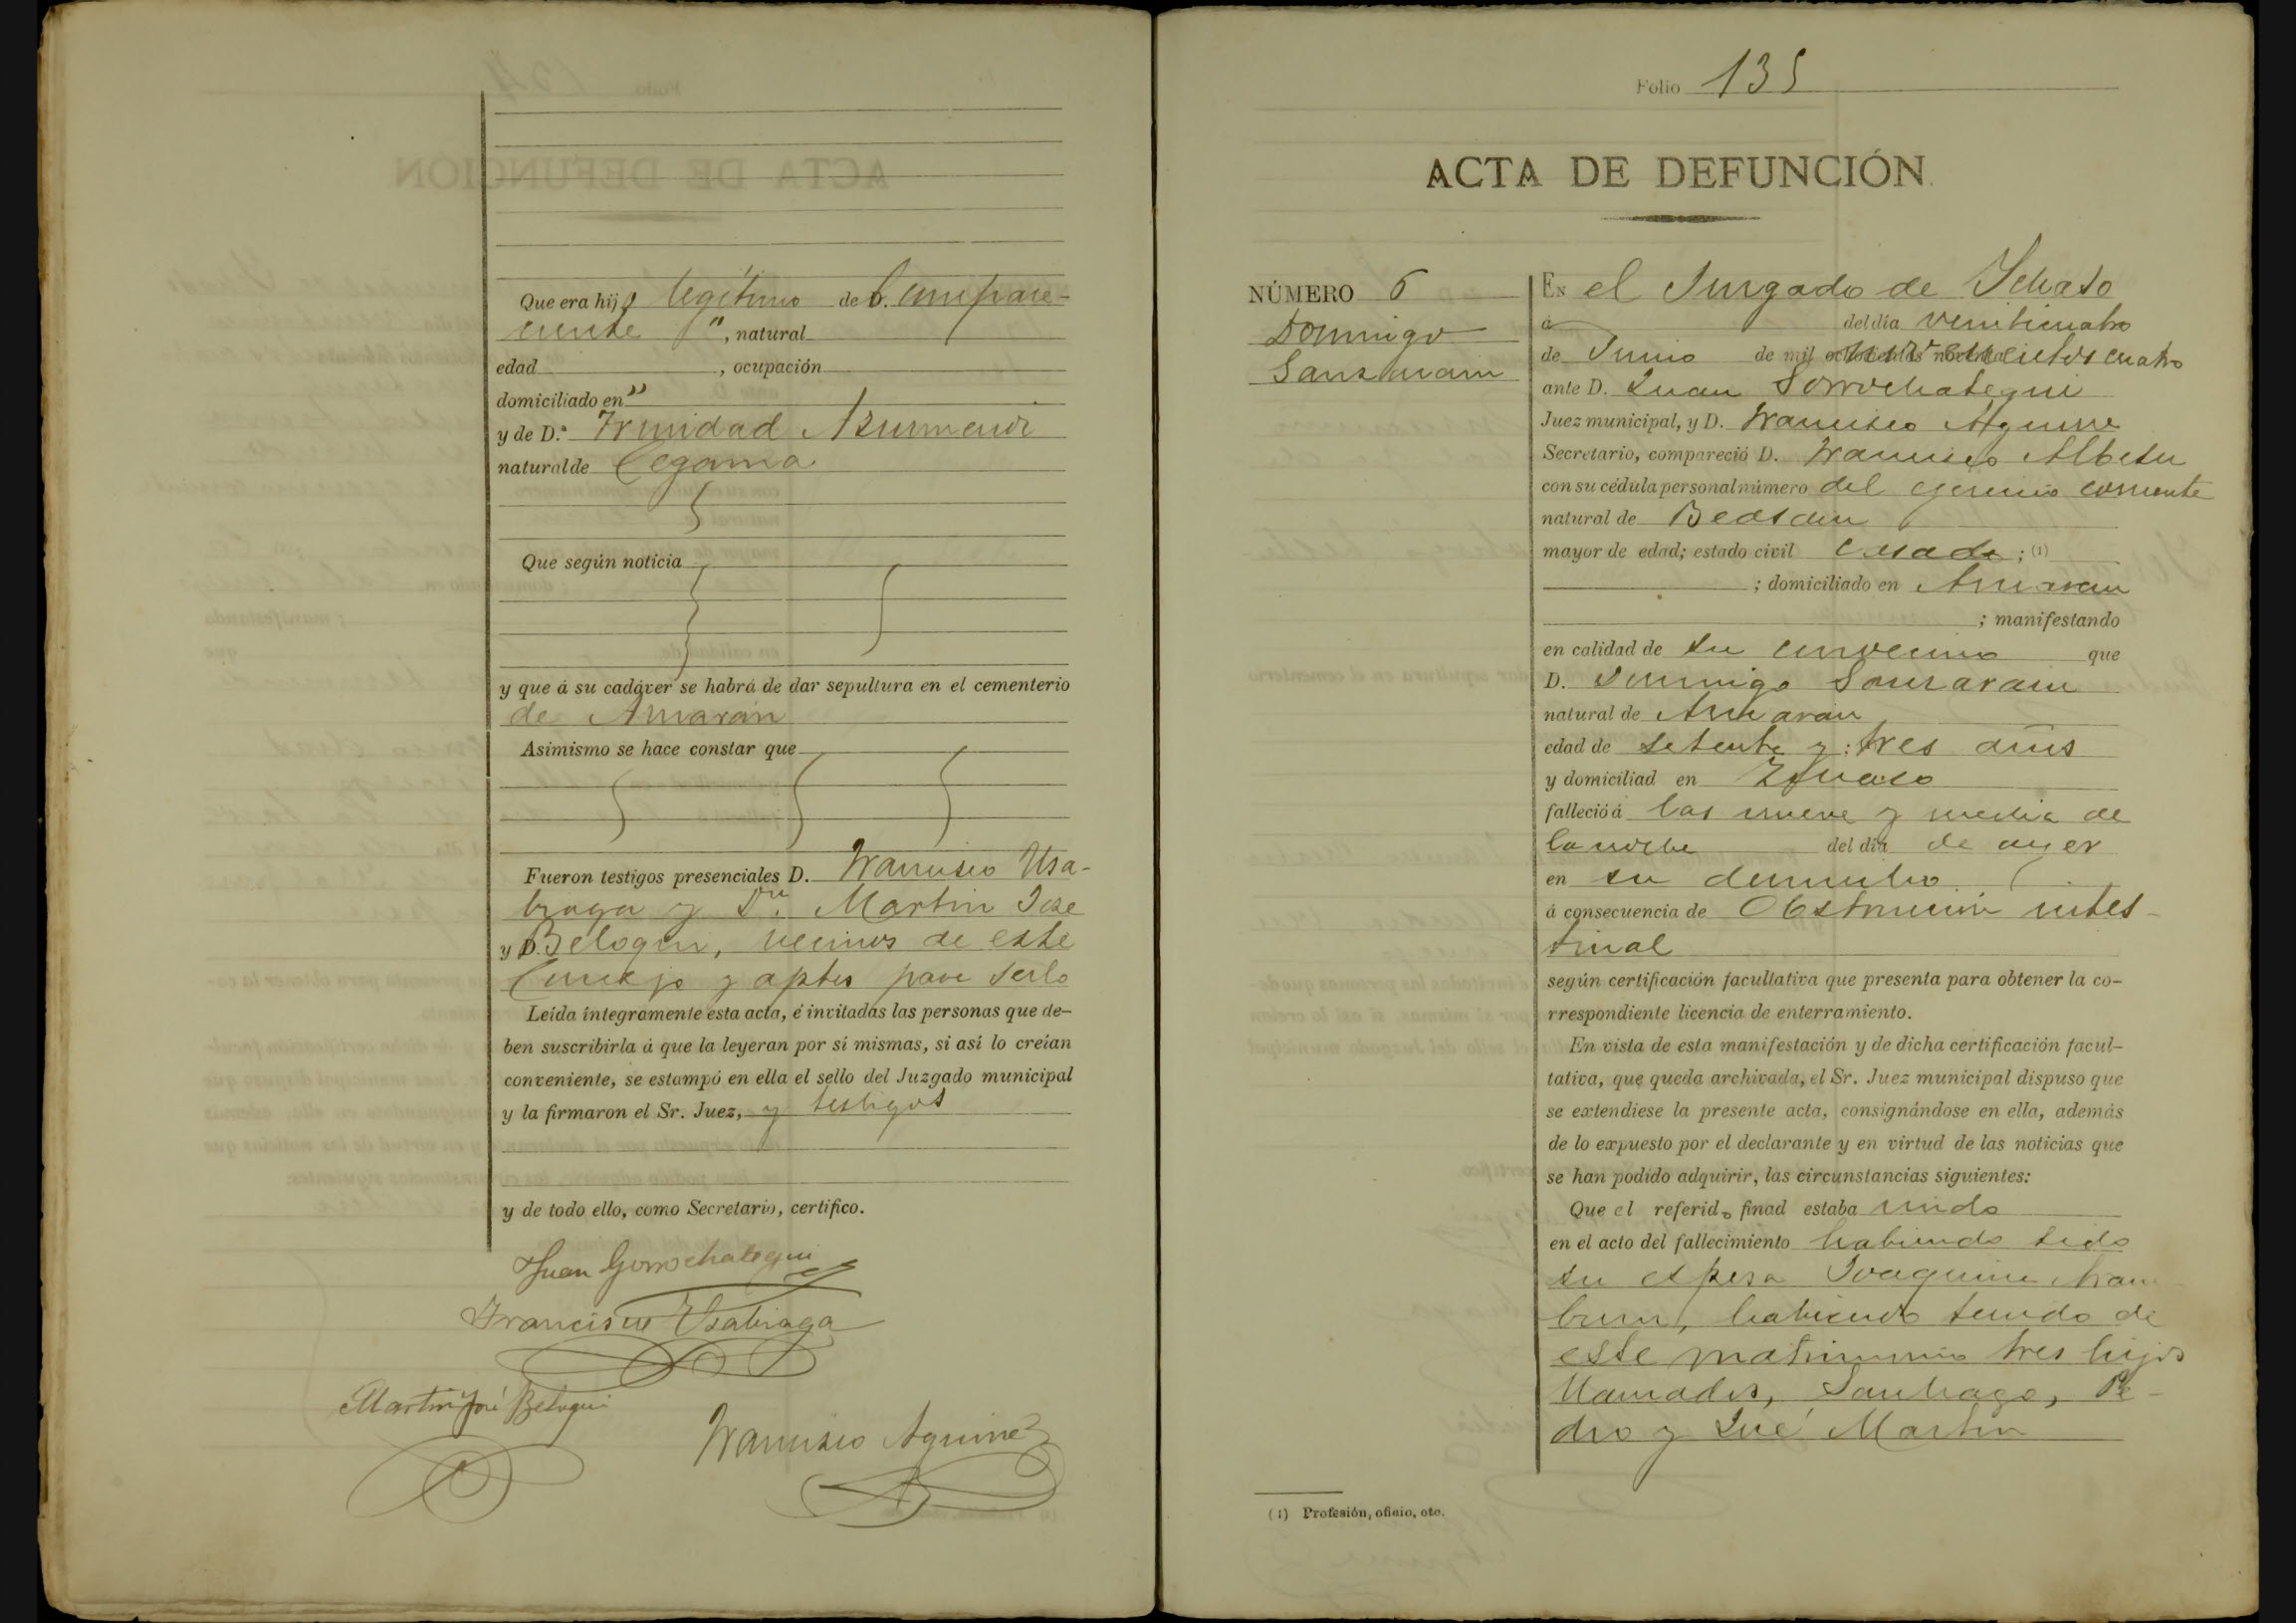 Que era hijo legítimo de D. Compare-
ciente " , natural
edad , ocupación
domiciliado en "
y de D.ª Trinidad Azurmendi
natural de Cegama
Que según noticia
y que á su cadáver se habrá de dar sepultura en el cementerio
de Amaran
Asimismo se hace constar que
Fueron testigos presenciales D. Francisco Usa-
biaga y Dn. Martin Jose
y D. Beloqui, vecinos de este
Concejo y aptos para serlo
Leída íntegramente esta acta, é invitadas las personas que de-
ben suscribirla á que la leyeran por sí mismas, si así lo creían
conveniente, se estampó en ella el sello del Juzgado municipal
y la firmaron el Sr. Juez, y testigos
y de todo ello, como Secretario, certifico.
Juan Gorrochategui
Francisco Usabiaga
Martin José Beloqui
Francisco Aguirre
Folio 135
ACTA DE DEFUNCIÓN
NÚMERO 6
Domingo
EN el Jurgado de
á del día veinticuatro
de Junio de mil novecientos cuatro
ante D. Juan Gorrochategui
Juez municipal, y D. Francisco Aguirre
Secretario, compareció D. Francisco Albisu
con su cédula personal número del ejercicio corriente
natural de Beasain
mayor de edad; estado civil casado; (1)
; domiciliado en Amaran
; manifestando
en calidad de su convecino que
D. Domingo
natural de Amaran
edad de setenta y tres años
y domiciliad en
falleció á las nueve y media de
la noche del día de ayer
en su domicilio
á consecuencia de Obstrucción intes-
tinal
según certificación facultativa que presenta para obtener la co-
rrespondiente licencia de enterramiento.
En vista de esta manifestación y de dicha certificación facul-
tativa, que queda archivada, el Sr. Juez municipal dispuso que
se extendiese la presente acta, consignándose en ella, además
de lo expuesto por el declarante y en virtud de las noticias que
se han podido adquirir, las circunstancias siguientes:
Que el referido finad estaba viudo
en el acto del fallecimiento habiendo sido
su esposa Joaquina Aram
buru, habiendo tenido de
este matrimonio tres hijos
llamados, Santiago, Pe-
dro y José Martin
(1) Profesión, oficio, etc.